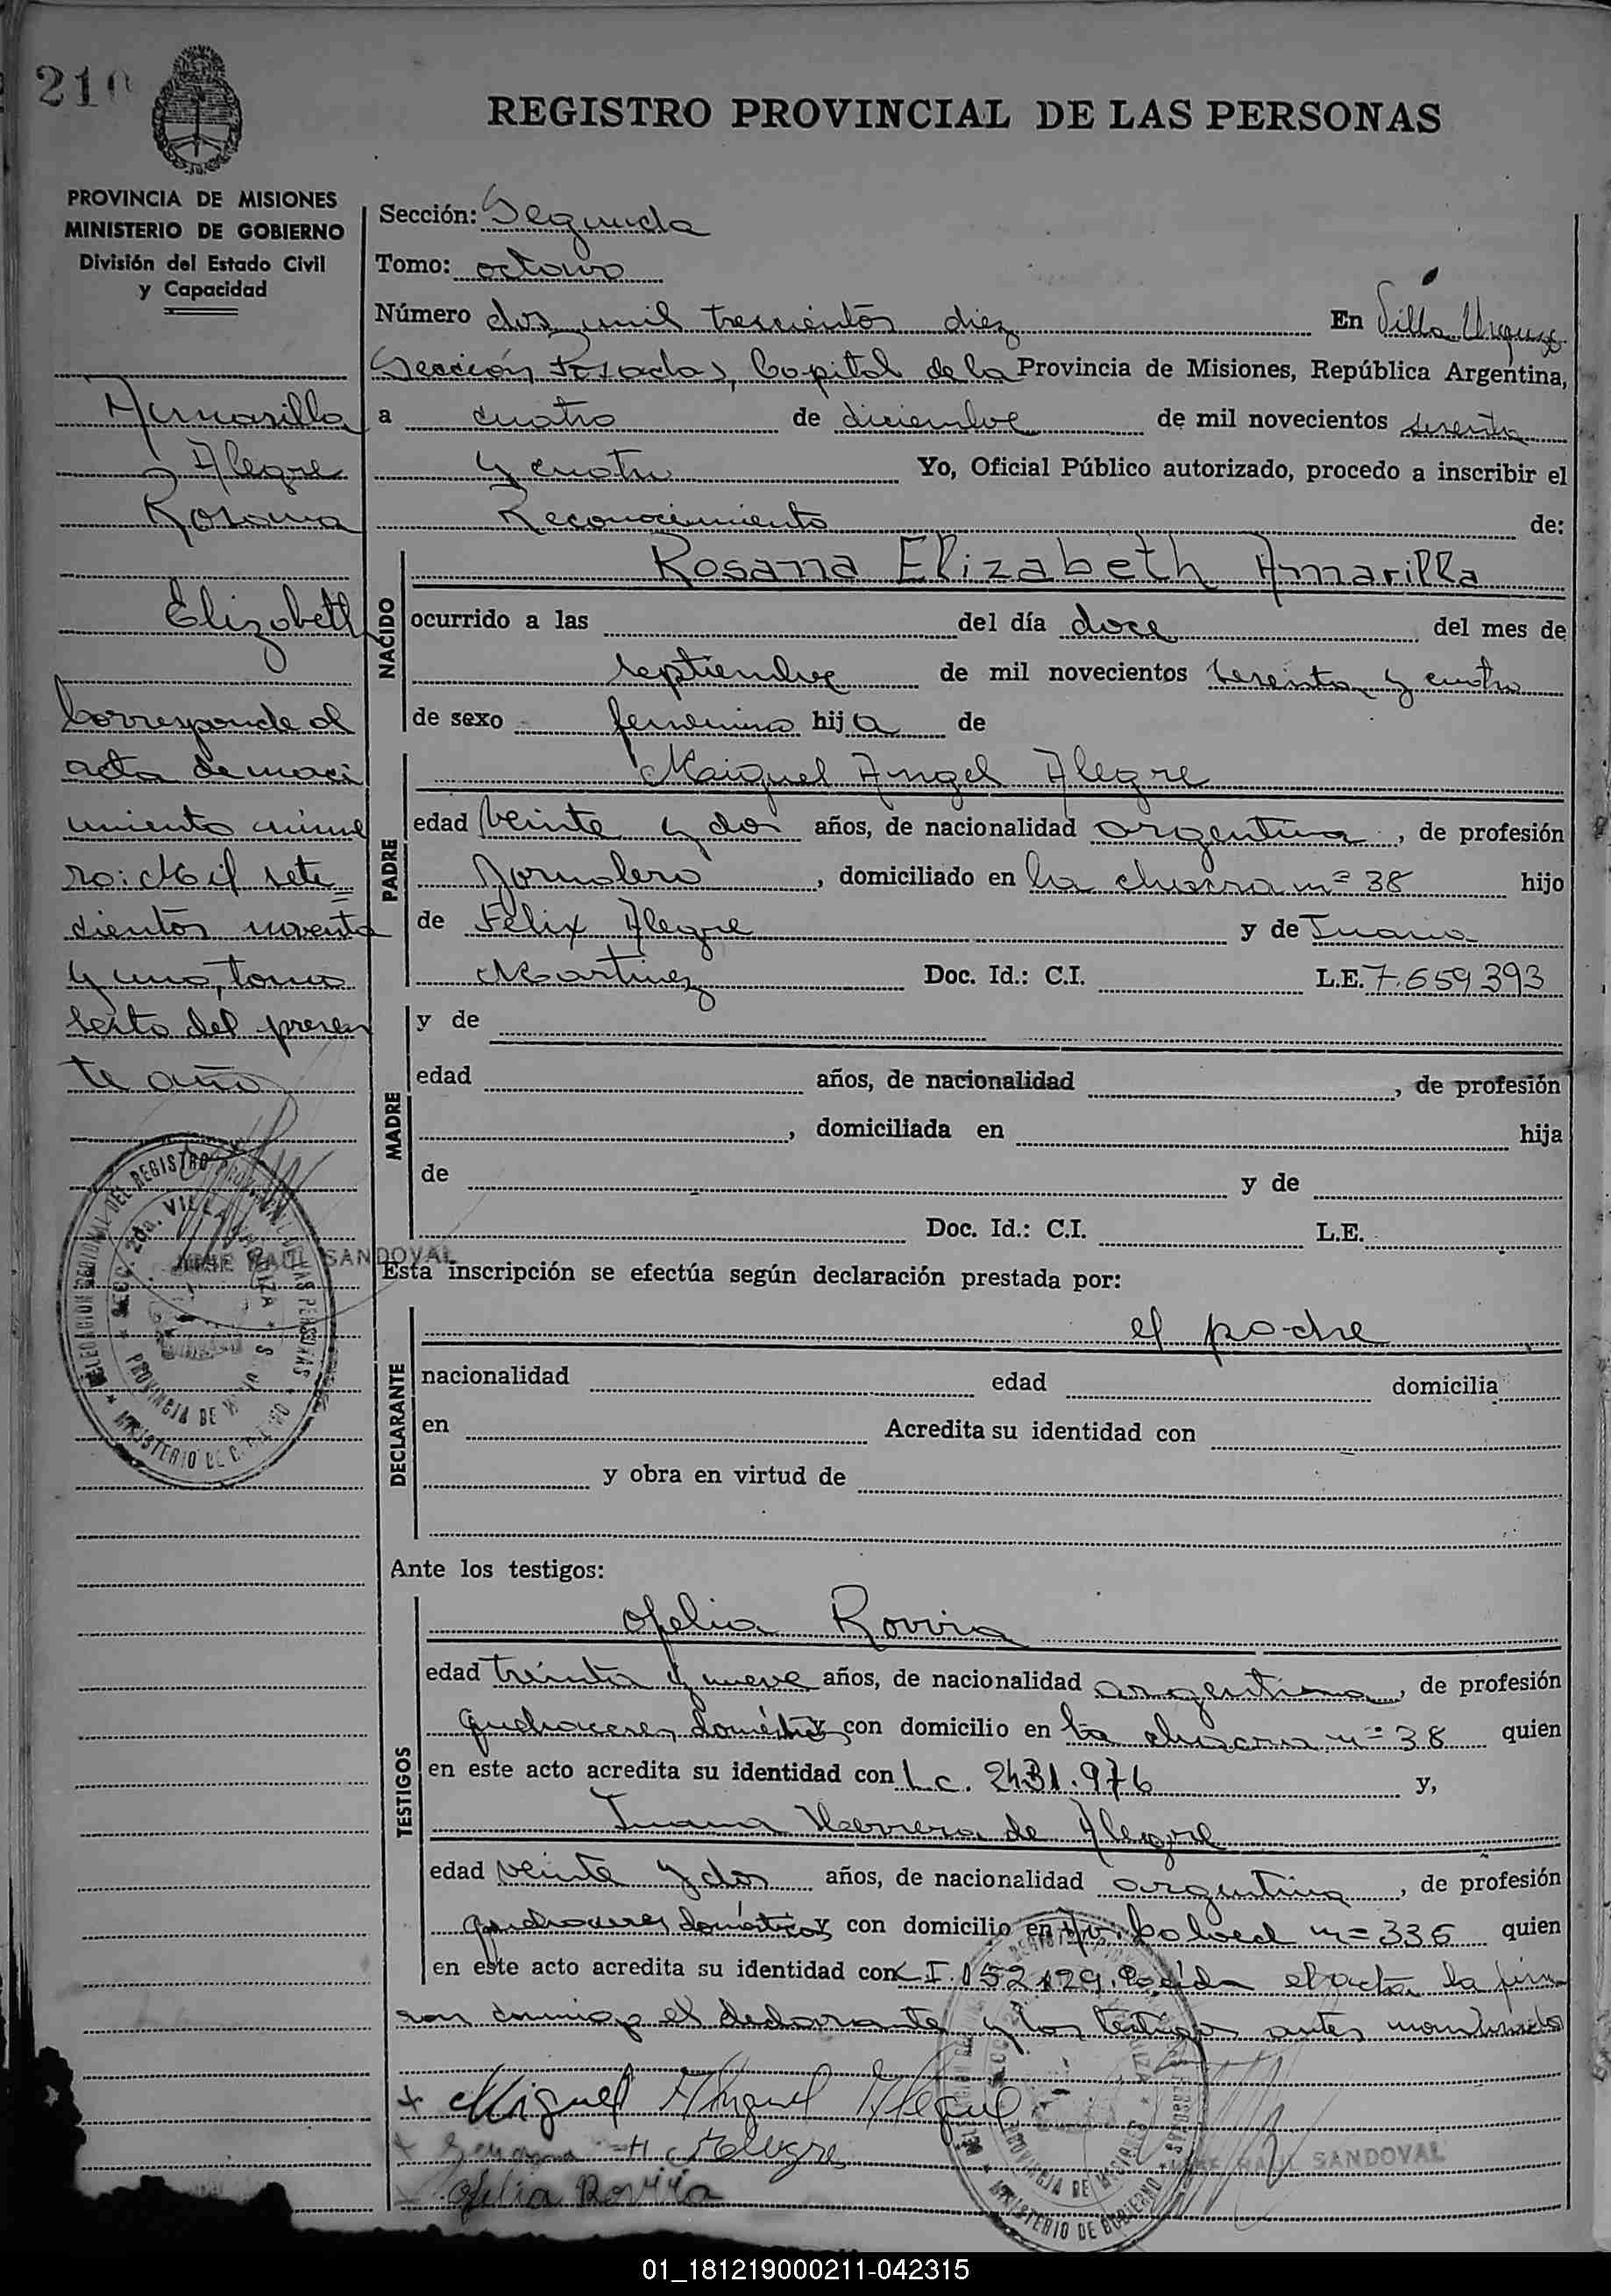 210
REGISTRO PROVINCIAL DE LAS PERSONAS
PROVINCIA DE MISIONES
MINISTERIO DE GOBIERNO
División del Estado Civil
y Capacidad
Amarilla
y Alegre
Rosana
Elizabeth
Corresponde al
acta de naci
miento núme
ro: Mil sete=
cientos noventa
y uno, tomo
sexto del presen
te año
Sección: Segunda
Tomo: octavo
Número dos mil trescientos diez En Villa Urquiza
Sección Posadas, Capital de la Provincia de Misiones, República Argentina,
a cuatro de diciembre de mil novecientos sesenta
y cuatro Yo, Oficial Público autorizado, procedo a inscribir el
Reconocimiento de:
NACIDO
Rosana Elizabeth Amarilla
ocurrido a las del día doce del mes de
septiembre de mil novecientos sesenta y cuatro
de sexo femenino hija de
PADRE
Miguel Angel Alegre
edad veinte y dos años, de nacionalidad argentina, de profesión
Jornalero, domiciliado en la chacra nº 38 hijo
de Félix Alegre y de Juana
Martinez Doc. Id.: C.I. L.E. 7.659.393
MADRE
y de
edad años, de nacionalidad , de profesión
, domiciliada en hija
de y de
Doc. Id.: C.I. L.E.
JOSE RAUL SANDOVAL
DELEGACION REGIONAL DEL REGISTRO PROVINCIAL DE LAS PERSONAS
SECC. 2da. VILLA URQUIZA
PROVINCIA DE MISIONES
MINISTERIO DE GOBIERNO
Esta inscripción se efectúa según declaración prestada por:
DECLARANTE
el padre
nacionalidad edad domicilia
en Acredita su identidad con
y obra en virtud de
Ante los testigos:
TESTIGOS
Ofelia Rovira
edad treinta y nueve años, de nacionalidad argentina, de profesión
quehaceres domésticos con domicilio en la chacra nº 38 quien
en este acto acredita su identidad con L.C. 2431.976 y,
Juana Herrera de Alegre
edad veinte y dos años, de nacionalidad argentina, de profesión
quehaceres domésticos y con domicilio en nº 335 quien
en este acto acredita su identidad con C.I. 152129. Leída el acta la firm
ron conmigo el declarante y los testigos antes nombrados
x Miguel Anguel Alegre
x H. Alegre
x Ofelia Rovira
PROVINCIA DE MISIONES
MINISTERIO DE GOBIERNO
JOSE RAUL SANDOVAL
01_181219000211-042315